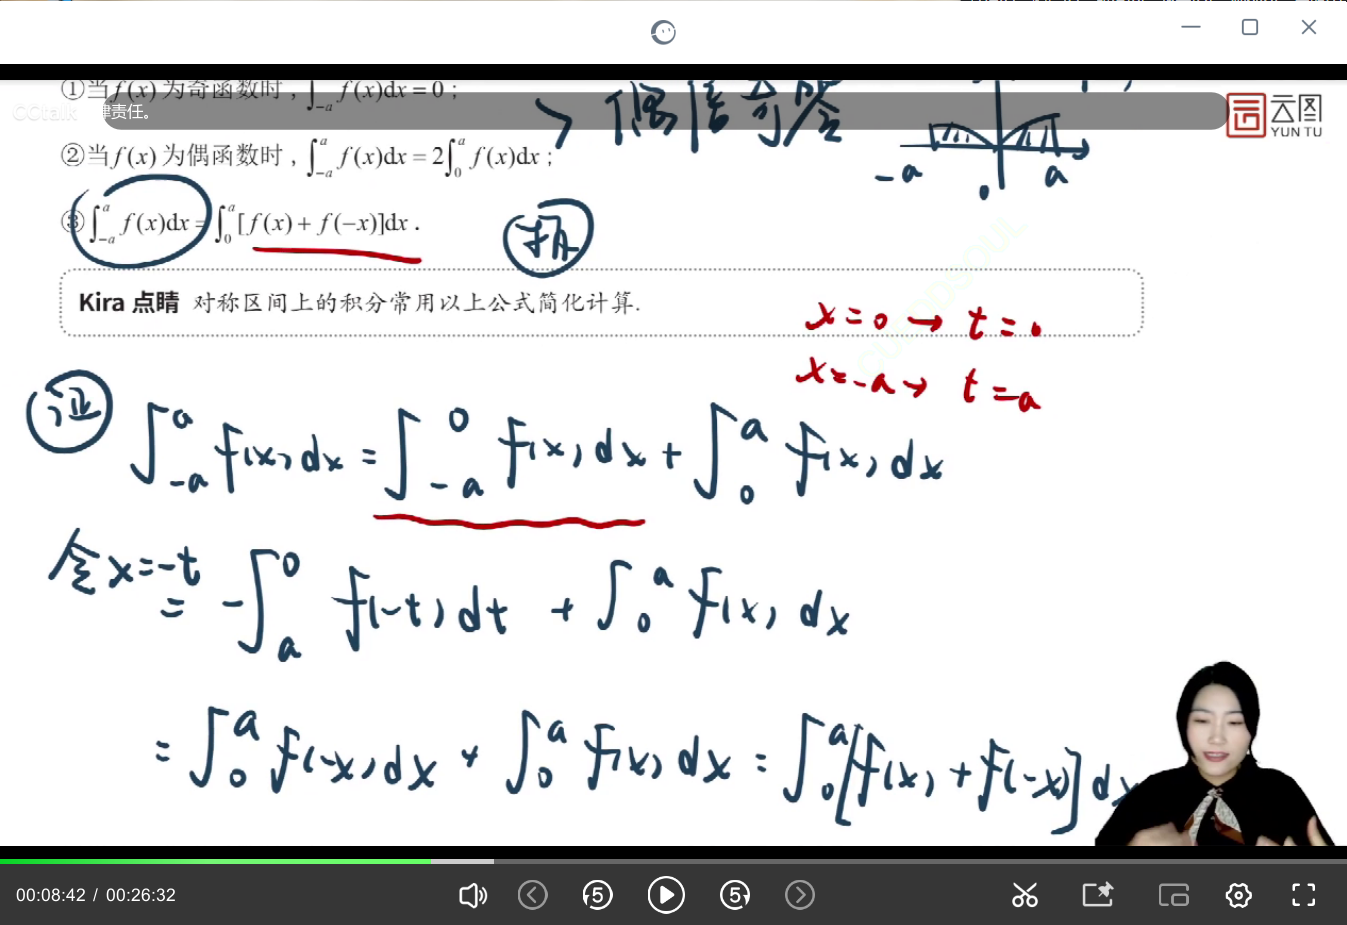 ①当f(x)为奇函数时，∫_{-a}^{a} f(x)dx = 0；
CCtalk 律责任。
> 偶倍奇零
云图
YUN TU
-a 0 a
②当f(x)为偶函数时，∫_{-a}^{a} f(x)dx = 2∫_{0}^{a} f(x)dx；
③∫_{-a}^{a} f(x)dx = ∫_{0}^{a} [f(x) + f(-x)]dx .
Kira 点睛 对称区间上的积分常用以上公式简化计算.
x=0 → t=0
x=-a → t=a
证 ∫_{-a}^{a} f(x)dx = ∫_{-a}^{0} f(x)dx + ∫_{0}^{a} f(x)dx
令x=-t
= -∫_{a}^{0} f(-t)dt + ∫_{0}^{a} f(x)dx
= ∫_{0}^{a} f(-x)dx + ∫_{0}^{a} f(x)dx = ∫_{0}^{a} [f(x) + f(-x)]dx
00:08:42 / 00:26:32
5 5